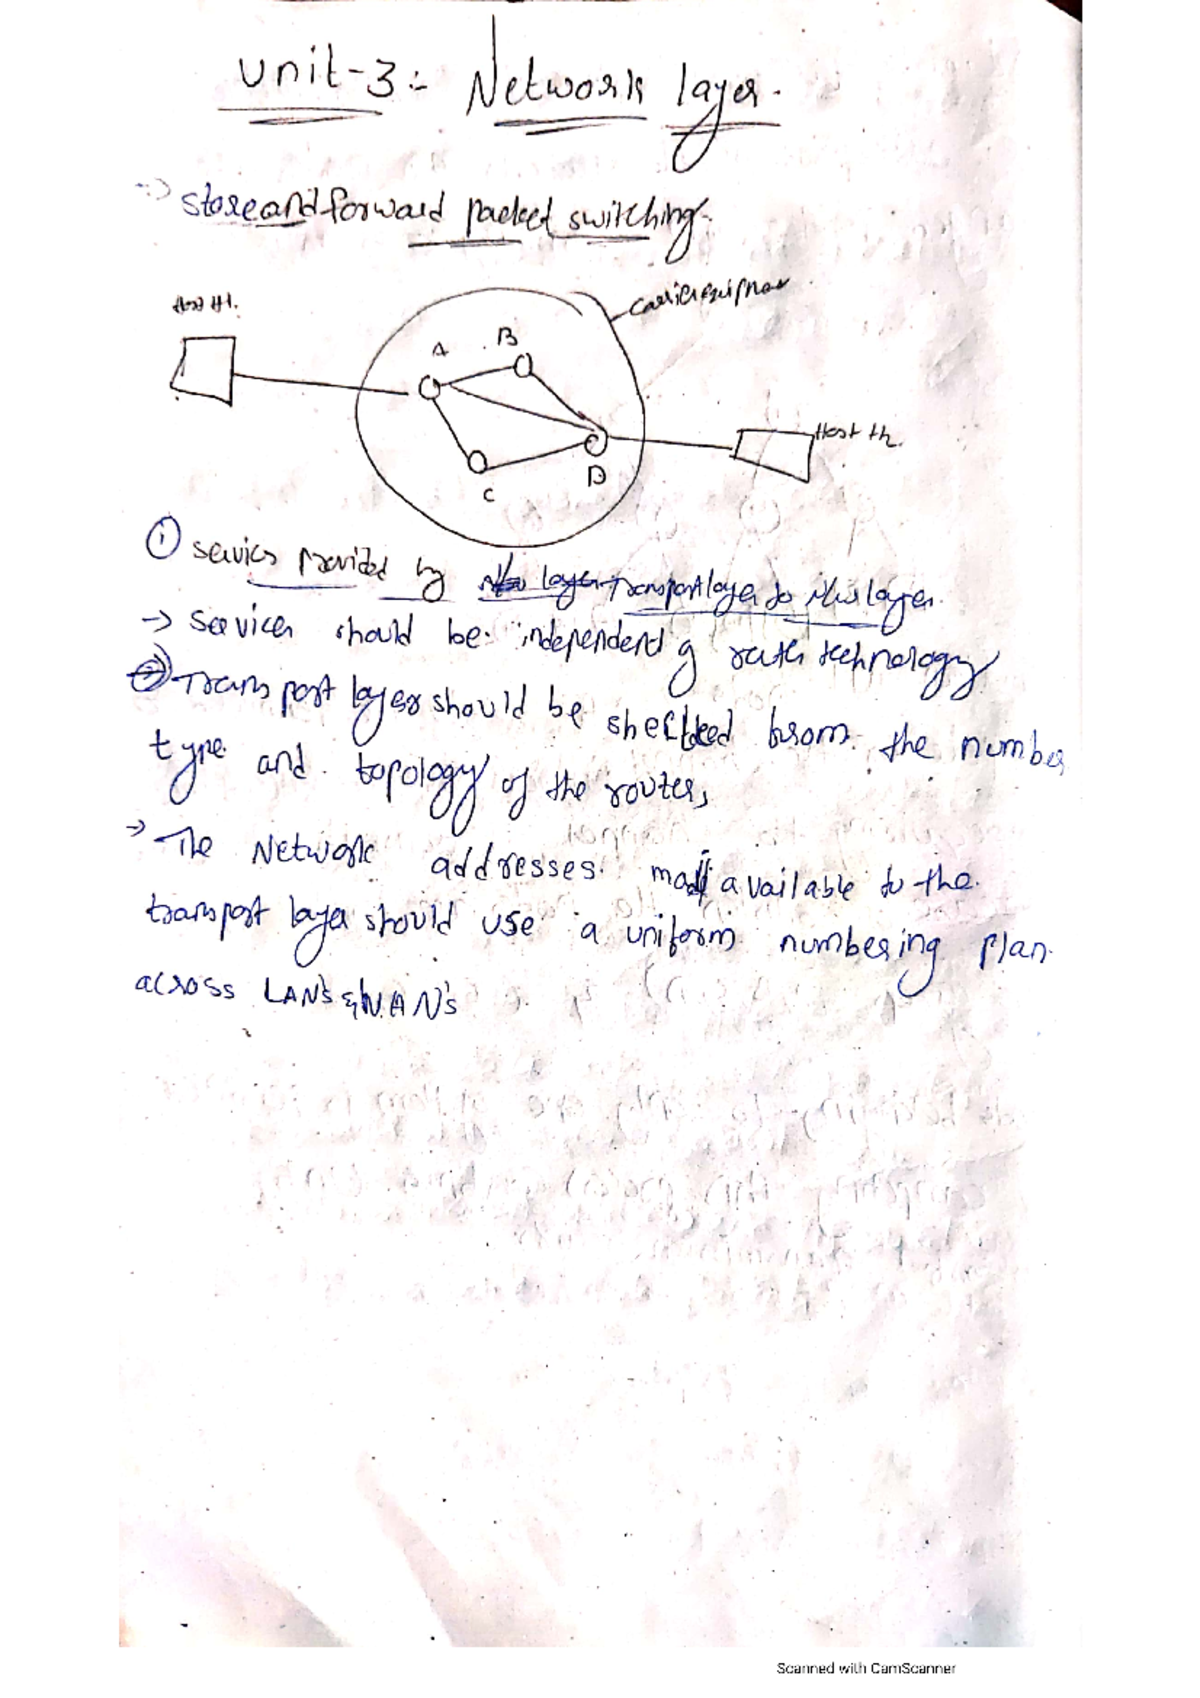 Unit-3:- Network layer.
-> store and forward packet switching.
Host H1.
A
B
C
D
Host H2.
① services provided by layer Transport layer to this layer.
-> Services should be independent of technology
② Transport layer should be from the number
type and topology of the routers,
-> The Network addresses made available to the
transport layer should use a uniform numbering plan
across LAN's & WAN's
Scanned with CamScanner